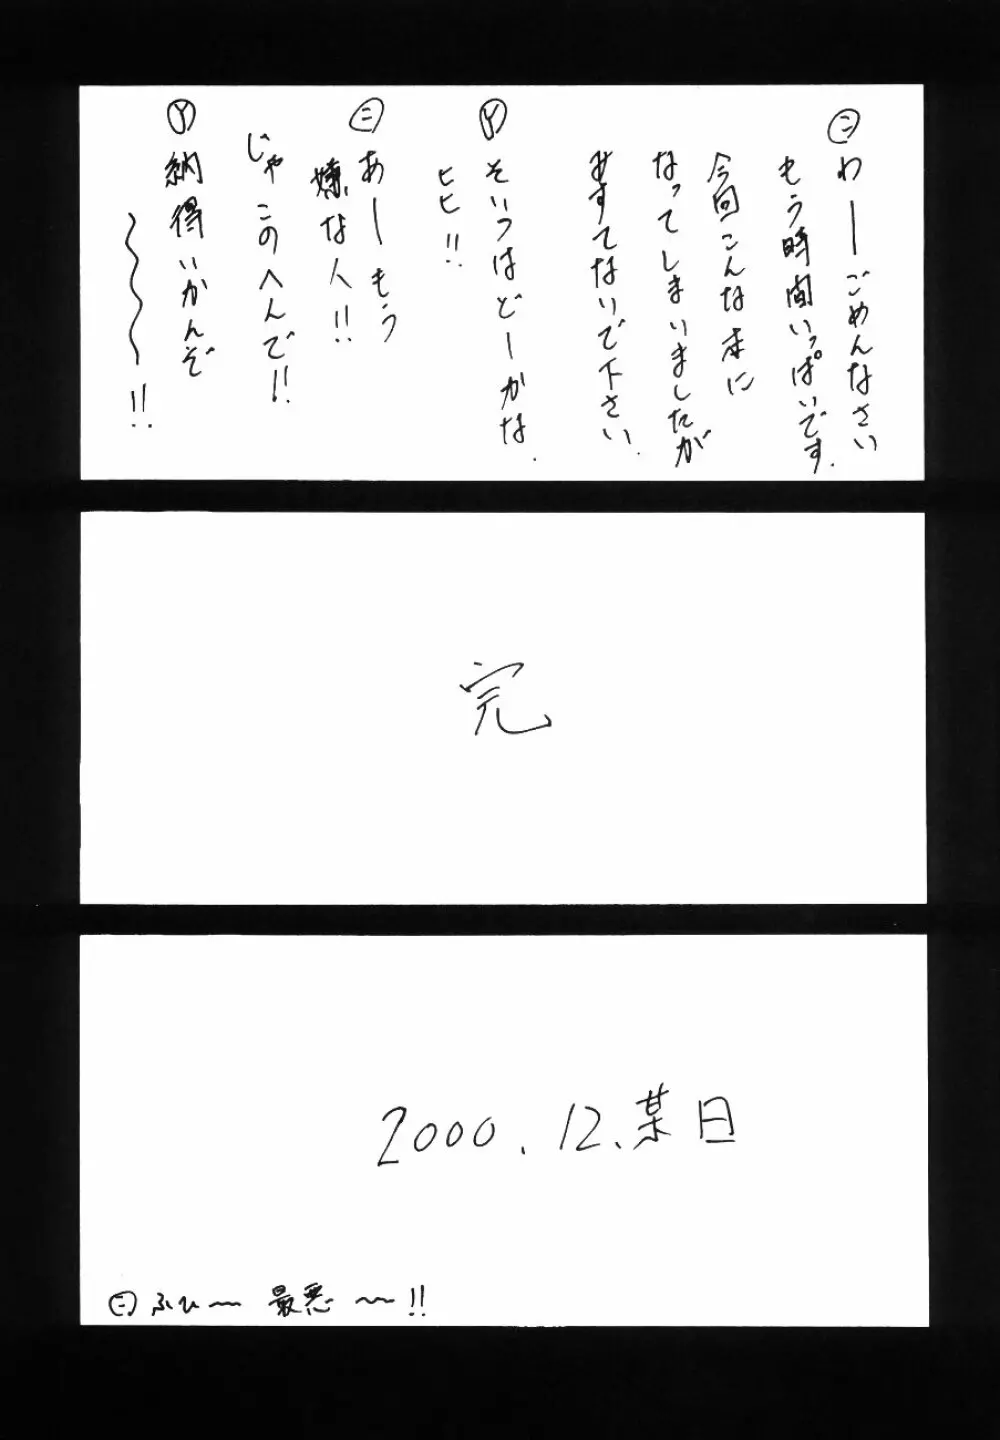 ㊁わーーごめんなさい
もう時間いっぱいです.
今回こんな本に
なってしまいましたが
みすてないで下さい.
Ⓨそいつはどーかな.
ヒヒ!!
㊁あーもう
嫌な人!!
じゃこのへんで!!
Ⓨ納得いかんぞ
〜〜〜!!
完
2000.12.某日
㊁ふひ〜 最悪〜!!